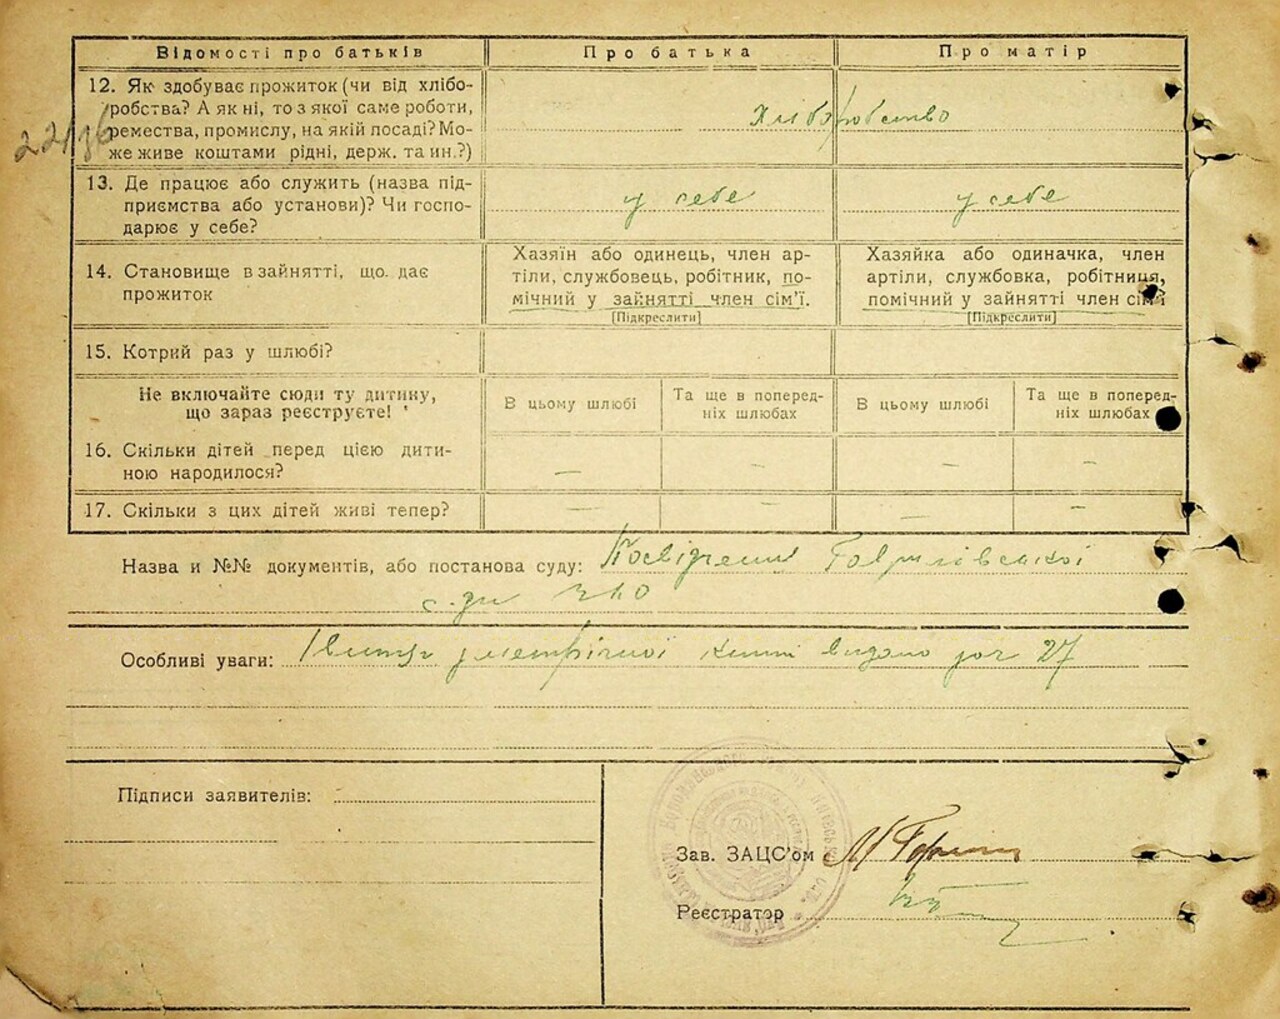 Відомості про батьків
Про батька
Про матір
12. Як здобуває прожиток (чи від хлібо-
робства? А як ні, то з якої саме роботи,
ремества, промислу, на якій посаді? Мо-
же живе коштами рідні, держ. та ин.?)
хліборобство
13. Де працює або служить (назва під-
приємства або установи)? Чи госпо-
дарює у себе?
у себе
у себе
14. Становище в зайнятті, що дає
прожиток
Хазяїн або одинець, член ар-
тіли, службовець, робітник, по-
мічний у зайнятті член сім'ї.
[Підкреслити]
Хазяйка або одиначка, член
артіли, службовка, робітниця,
помічний у зайнятті член сім'ї
[Підкреслити]
15. Котрий раз у шлюбі?
Не включайте сюди ту дитину,
що зараз реєструєте!
В цьому шлюбі
Та ще в поперед-
ніх шлюбах
В цьому шлюбі
Та ще в поперед-
ніх шлюбах
16. Скільки дітей перед цією дити-
ною народилося?
— — — —
17. Скільки з цих дітей живі тепер?
— — — —
Назва и №№ документів, або постанова суду: Посвідчення Гаврилівської
Особливі уваги: метрічної видано 27
Підписи заявителів:
Зав. ЗАЦС'ом
Реєстратор